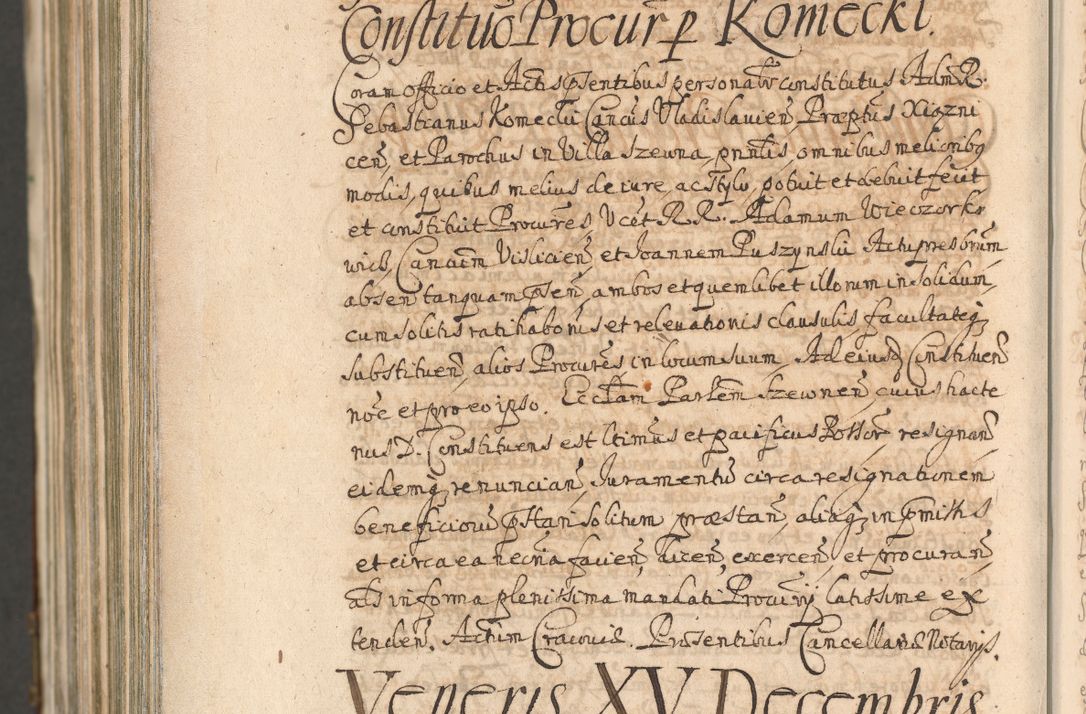 Constituo Procur p Komecki.
Coram officio et Actis psentibus personaltr constitutus Adm R.
Sebastianus Komecki Cancus Vladislavien, Præptus Xiązni
cen, et Parochus in Villa Szewna, pnntis, omnibus melioribus
modis, quibus melius de iure, ac stylo, potuit et debuit fecit
et constituit Procures, Vcet R. R. Adamum Wieczorko
wicz, Cancum Vislicien, et Joannem Puszynski Actu presbrum
absen tanquam psen, ambos et quemlibet illorum in solidum,
cum solitis ratihabonis et relevationis clausulis facultateq
substituen, alios Procures in locum suum. Ad eiusd Constituen
noe et pro eo ipso. Ecclam Parlem Szewnen, cuius hacte
nus D. Constituens est ltimus et pacificus Possor resignan
eidemq renuncian, Juramentu circa resignationem
beneficioru pstari solitum præstan, aliaq in pmissis
et circa ea necria facien, dicen, exercen, et procuran
als in forma plenissima mandati Procurij latissime ex
tenden. Actum Cracoviæ. Præsentibus Cancellariæ Notarijs.
Veneris XV Decembris